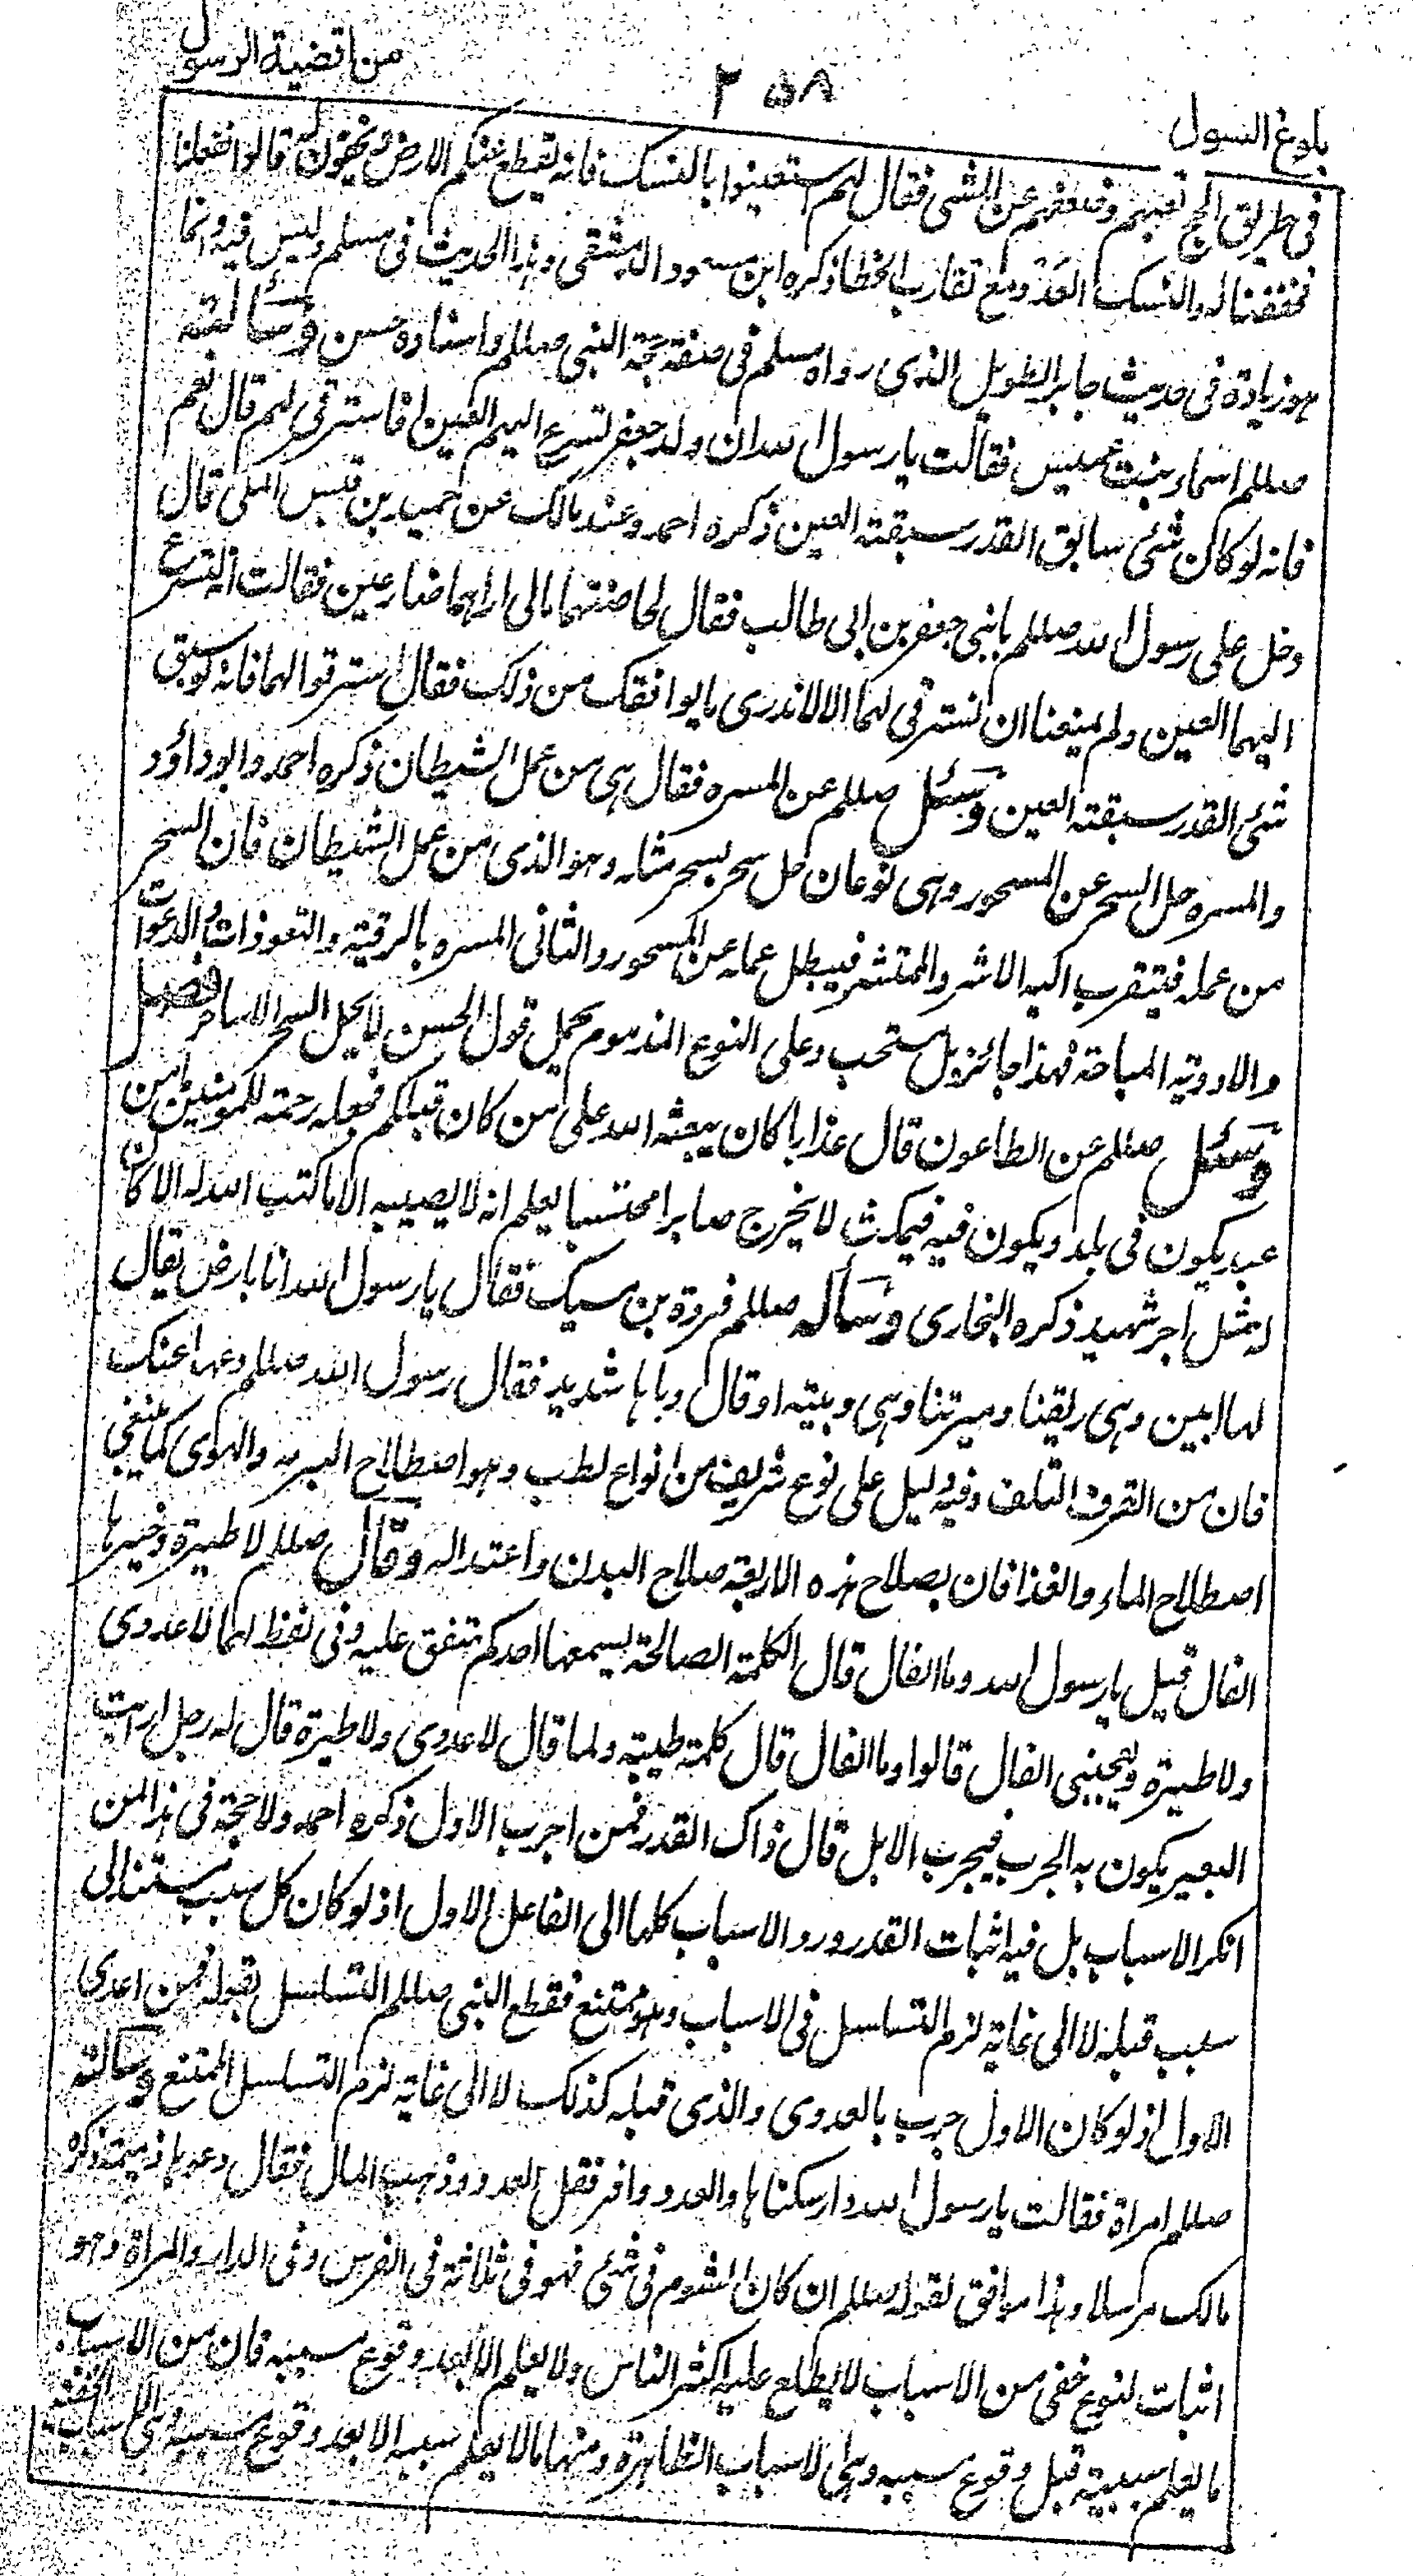 بلوغ السول
٢٥٨
من اقضية الرسول
فى طريق الحج تعبهم وضعفهم عن المشى فقال لهم استعينوا بالنسك فانه يقطع عنكم الارض وتخفون له قالوا ففعلنا
فخففنا له والنسك العدو مع تقارب الخطا ذكره ابن مسعود الدمشقى وهذا الحديث فى مسلم وليس فيه وانما
هو زيادة فى حديث جابر الطويل الذى رواه مسلم فى صفة حجة النبى صللم واسناده حسن وسألته
صللم اسماء بنت عميس فقالت يا رسول الله ان ولد جعفر تسرع اليهم العين افاسترقى لهم قال نعم
فانه لو كان شئ سابق القدر سبقته العين ذكره احمد وعند مالك عن حميد بن قيس المكى قال
دخل على رسول الله صللم بابنى جعفر بن ابى طالب فقال لحاضنتهما مالى اراهما ضارعين فقالت انه تسرع
اليهما العين ولم يمنعنا ان نسترقى لهما الا لا ندرى ما يوافقك من ذلك فقال استرقوا لهما فانه لو سبق
شئ القدر سبقته العين وسئل صللم عن المسره فقال هى من عمل الشيطان ذكره احمد وابو داؤد
والمسره حل السحر عن المسحور وهى نوعان حل سحر بسحر مثله وهو الذى من عمل الشيطان فان السحر
من عمله فيتقرب اليه الاشر والمتشر فيبطل عمله عن المسحور والثانى المسره بالرقية والتعوذات والدعوات
والادوية المباحة فهذا جائز بل مستحب وعلى النوع المذموم يحمل قول الحسن لا يحل السحر الا ساحر فصل
وسئل صللم عن الطاعون قال عذابا كان يبعثه الله على من كان قبلكم فجعله رحمة للمومنين ما من
عبد يكون فى بلد ويكون فيه فيمكث لا يخرج صابرا محتسبا يعلم انه لا يصيبه الا ما كتب الله له الا كان
له مثل اجر شهيد ذكره البخارى وسأله صللم فروة بن مسيك فقال يا رسول الله انا بارض يقال
لها ابين وهى ريقنا وميرتنا وهى وبيئة او قال وباها شديد فقال رسول الله صللم دعها عنك
فان من القرف التلف وفيه دليل على نوع شريف من انواع لطب وهو اصطلاح البريه والهوى كما ينبغى
اصطلاح الماء والغذا فان بصلاح هذه الاربعة صلاح البدن واعتداله وقال صللم لا طيرة وخيرها
الفال قيل يا رسول الله وما الفال قال الكلمة الصالحة يسمعها احدكم متفق عليه وفى لفظ لهما لا عدوى
ولا طيرة ويعجبنى الفال قالوا وما الفال قال كلمة طيبة ولما قال لا عدوى ولا طيرة قال له رجل ارايت
البعير يكون به الجرب فيجرب الابل قال ذاك القدر فمن اجرب الاول ذكره احمد ولا حجة فى هذا لمن
انكر الاسباب بل فيه اثبات القدر ورد الاسباب كلها الى الفاعل الاول اذ لو كان كل سبب مستندا الى
سبب قبله لا الى غاية لزم التسلسل فى الاسباب وهو ممتنع فقطع النبى صللم التسلسل بقوله فمن اعدى
الاول اذ لو كان الاول جرب بالعدوى والذى قبله كذلك لا الى غاية لزم التسلسل الممتنع وسألته
صللم امراة فقالت يا رسول الله دار سكناها والعدد وافر فقل العدد وذهب المال فقال دعوها ذميمة ذكره
مالك مرسلا وهذا موافق لقوله صللم ان كان الشوم فى شئ فهو فى ثلاثة فى الفرس وفى الدار والمراة وهو
اثبات لنوع خفى من الاسباب لا يطلع عليه اكثر الناس ولا يعلم الا بعد وقوع سببه فان من الاسباب
ما يعلم سببيته قبل وقوع سببه وهى الاسباب الظاهرة ومنها ما لا يعلم سببه الا بعد وقوع سببه وهى الاسباب الخفية